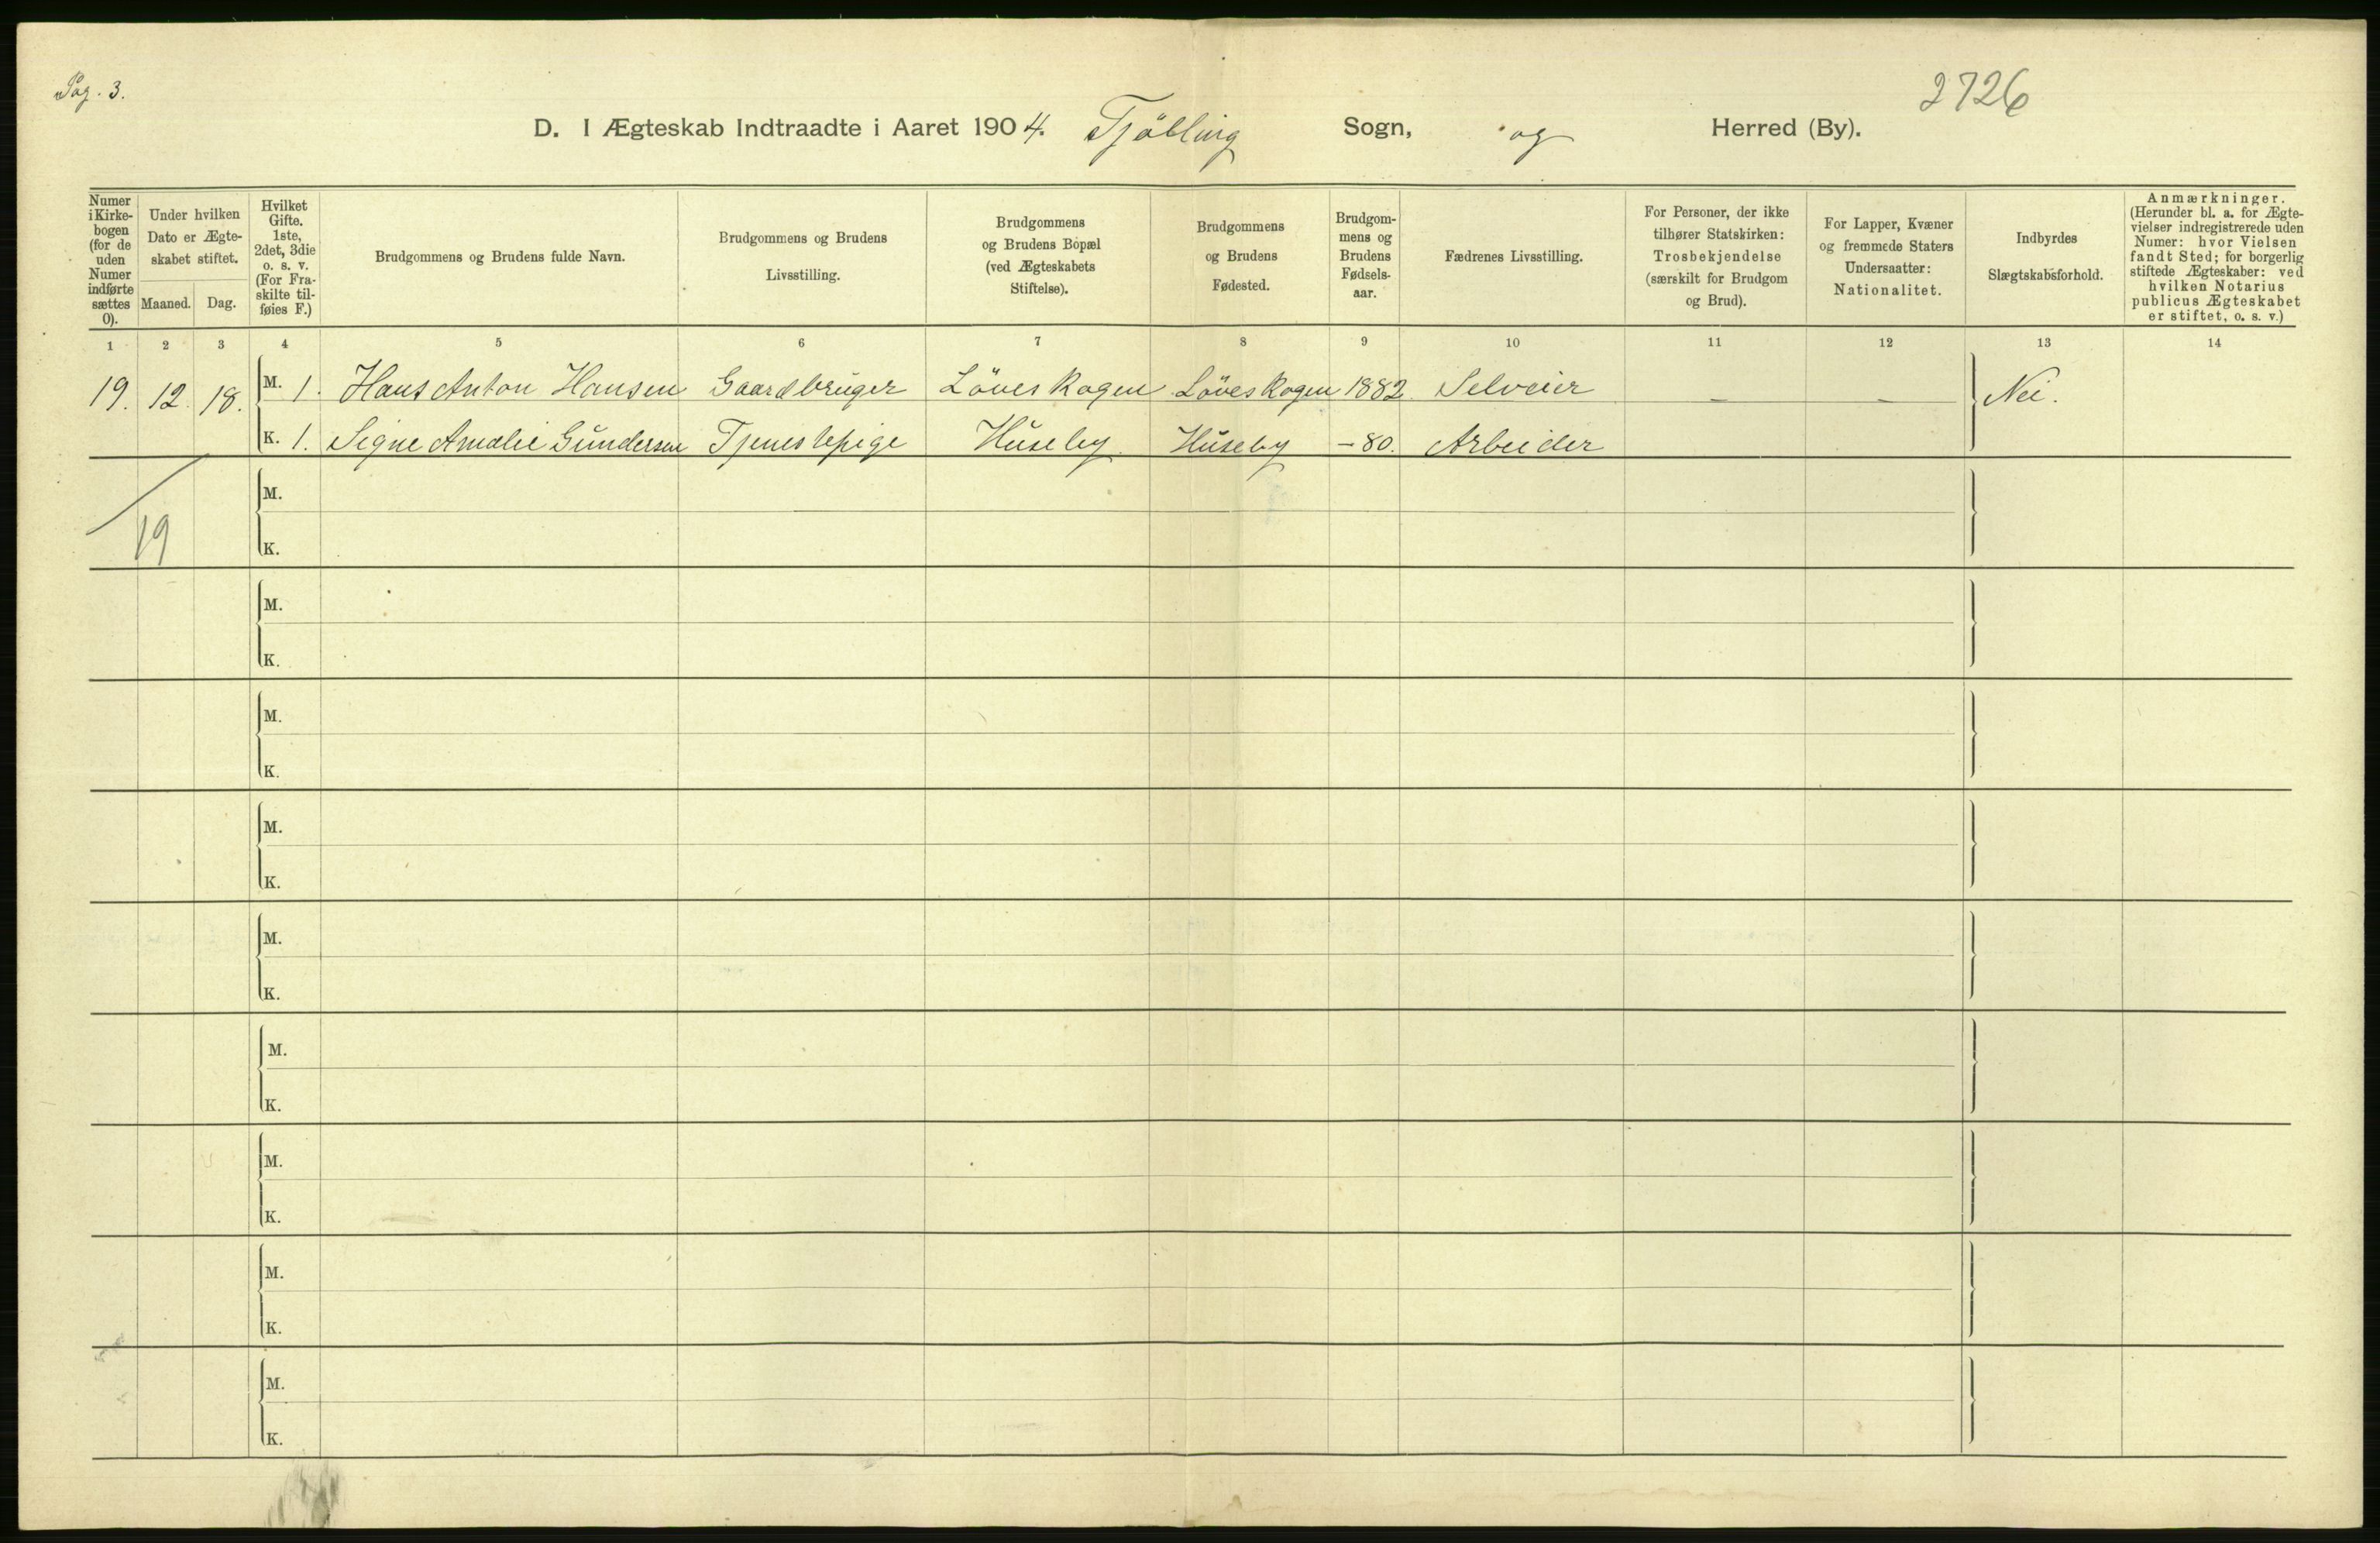 Pag. 3.
2726
D. I Ægteskab Indtraadte i Aaret 1904. Tjölling Sogn, og Herred (By).
Numer i Kirkebogen (for de uden Numer indførte sættes 0).
Under hvilken Dato er Ægteskabet stiftet.
Maaned. Dag.
Hvilket Gifte. 1ste, 2det, 3die o. s. v. (For Fraskilte tilføies F.)
Brudgommens og Brudens fulde Navn.
Brudgommens og Brudens Livsstilling.
Brudgommens og Brudens Bopæl (ved Ægteskabets Stiftelse).
Brudgommens og Brudens Fødested.
Brudgommens og Brudens Fødselsaar.
Fædrenes Livsstilling.
For Personer, der ikke tilhører Statskirken: Trosbekjendelse (særskilt for Brudgom og Brud).
For Lapper, Kvæner og fremmede Staters Undersaatter: Nationalitet.
Indbyrdes Slægtskabsforhold.
Anmærkninger. (Herunder bl. a. for Ægtevielser indregistrerede uden Numer: hvor Vielsen fandt Sted; for borgerlig stiftede Ægteskaber: ved hvilken Notarius publicus Ægteskabet er stiftet, o. s. v.)
1 2 3 4 5 6 7 8 9 10 11 12 13 14
19. 12. 18. M. 1. Hans Anton Hansen Gaardbruger Löveskogen Löveskogen 1882 Selveier — — Nei.
K. 1. Signe Amalie Gundersen Tjenestepige Huseby Huseby —80. Arbeider
19
M.
K.
M.
K.
M.
K.
M.
K.
M.
K.
M.
K.
M.
K.
M.
K.
M.
K.